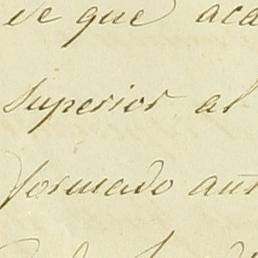 de que aca
Superior al
formado aun